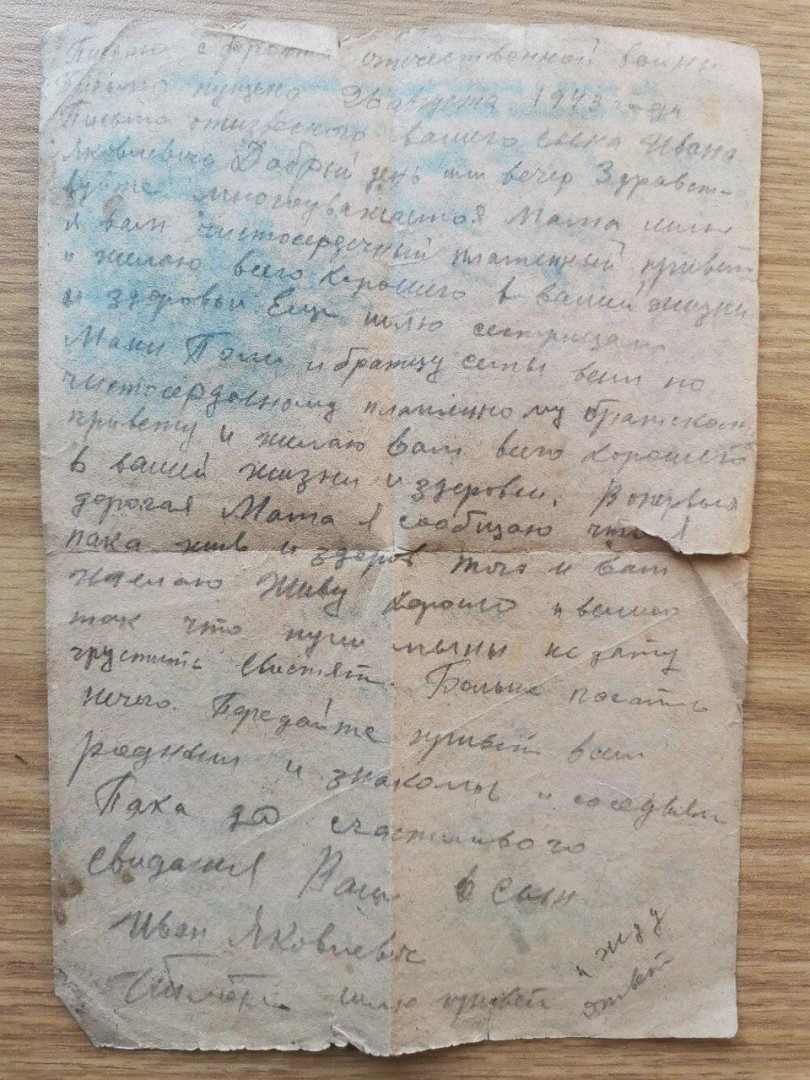 Письмо с фронта отечественной войны
Письмо пущено 26 августа 1943 года
Письмо от вашего сына Ивана
Яковлевича Добрый день или вечер Здравст-
вуйте многоуважаемая Мама шлю
я вам чистосердечный пламенный привет
и желаю всего хорошего в вашей жизни
и здоровьи Еще шлю сестрицам
Мани Поли и братцу сени по
чистосердечному пламенному братском
привету и желаю вам всего хорошего
в вашей жизни и здоровьи. Вопервых
дорогая Мама я сообщаю что я
пака жив и здоров того и вам
желаю Живу хорошо и весело
так что пули мины не дату
грустить свистят. Больше писать
нечего. Передайте привет всем
родным и знакомы и соседям
Пака до счастливого
свидания Ваш сын
Иван Яковлевич
шлю привет
и жду
ответ